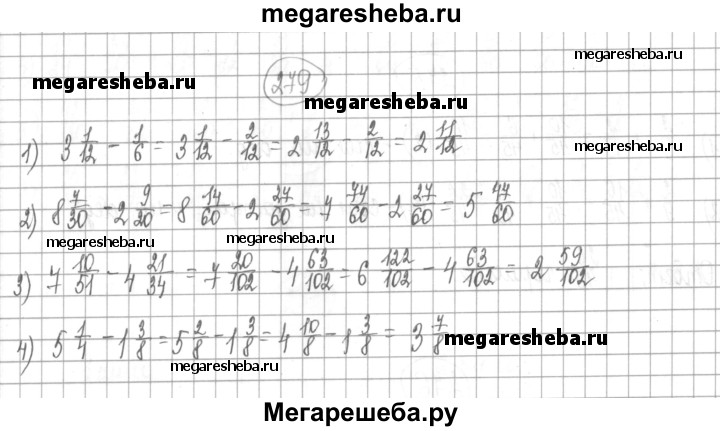 megaresheba.ru
megaresheba.ru
megaresheba.ru
279
megaresheba.ru
1) 3 1/12 - 1/6 = 3 1/12 - 2/12 = 2 13/12 - 2/12 = 2 11/12
megaresheba.ru
2) 8 7/30 - 2 9/20 = 8 14/60 - 2 27/60 = 7 74/60 - 2 27/60 = 5 47/60
megaresheba.ru
megaresheba.ru
3) 7 10/51 - 4 21/34 = 7 20/102 - 4 63/102 = 6 122/102 - 4 63/102 = 2 59/102
4) 5 1/4 - 1 3/8 = 5 2/8 - 1 3/8 = 4 10/8 - 1 3/8 = 3 7/8
megaresheba.ru
megaresheba.ru
Мегарешеба.ру